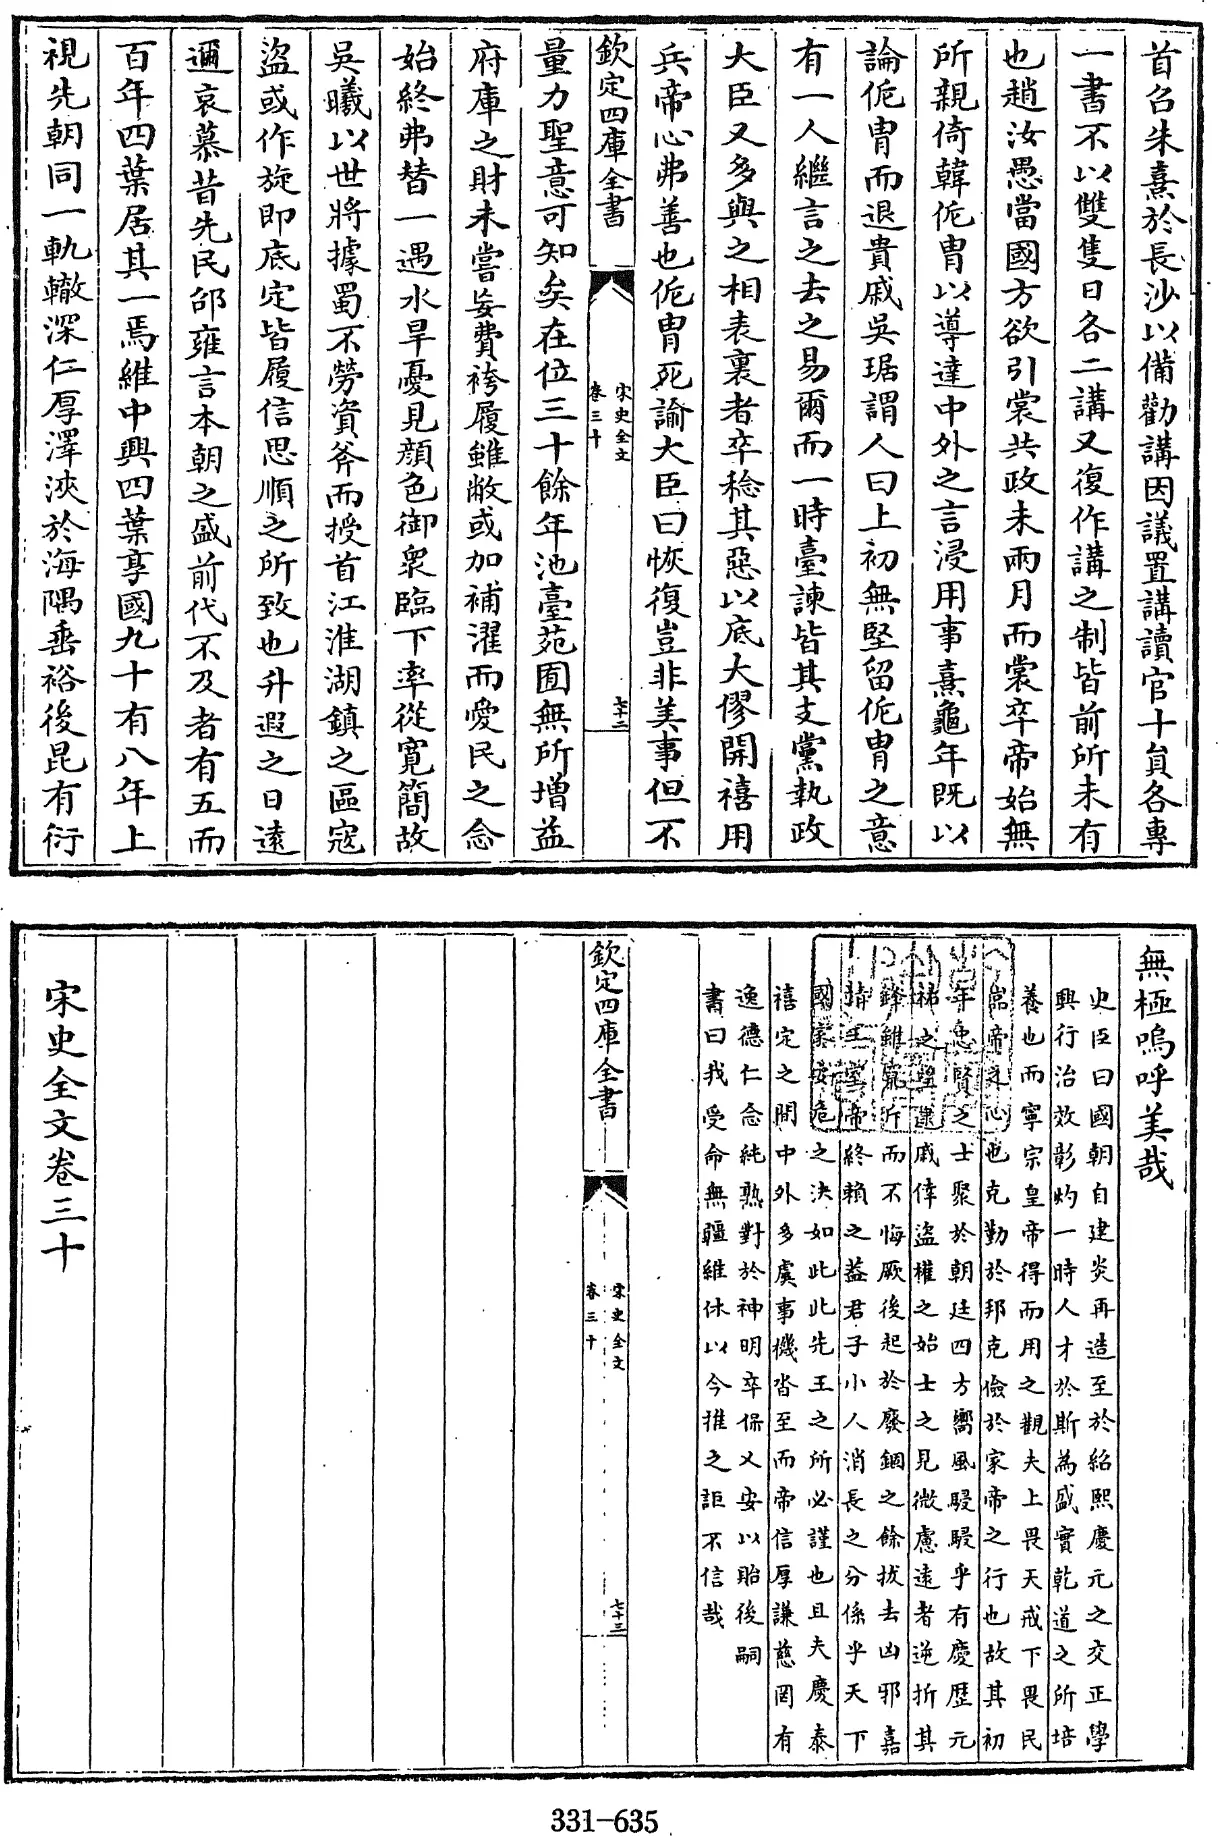 首召朱熹於長沙以備勸講因議置講讀官十員各專
一書不以雙隻日各二講又復作講之制皆前所未有
也趙汝愚當國方欲引裳共政未兩月而裳卒帝始無
所親倚韓侂胄以導達中外之言浸用事熹龜年既以
論侂胄而退貴戚吳琚謂人曰上初無堅留侂胄之意
有一人繼言之去之易爾而一時臺諫皆其支黨執政
大臣又多與之相表裏者卒稔其惡以底大僇開禧用
兵帝心弗善也侂胄死諭大臣曰恢復豈非美事但不
欽定四庫全書
宋史全文
卷三十
七十二
量力聖意可知矣在位三十餘年池臺苑囿無所增益
府庫之財未嘗妄費袴履雖敝或加補濯而愛民之念
始終弗替一遇水旱憂見顔色御衆臨下率從寛簡故
吳曦以世將據蜀不勞資斧而授首江淮湖鎮之區寇
盜或作旋即底定皆履信思順之所致也升遐之日逺
邇哀慕昔先民邵雍言本朝之盛前代不及者有五而
百年四葉居其一焉維中興四葉享國九十有八年上
視先朝同一軌轍深仁厚澤浹於海隅垂裕後昆有衍
無極嗚呼美哉
史臣曰國朝自建炎再造至於紹熙慶元之交正學
興行治效彰灼一時人才於斯為盛實乾道之所培
養也而寧宗皇帝得而用之觀夫上畏天戒下畏民
嵒帝之心也克勤於邦克儉於家帝之行也故其初
年忠賢之士聚於朝廷四方嚮風駸駸乎有慶歴元
祐之望逮戚倖盜權之始士之見微慮遠者逆折其
鋒雖竄斥而不悔厥後起於廢錮之餘拔去凶邪嘉
靖王室帝終賴之益君子小人消長之分係乎天下
國家安危之決如此此先王之所必謹也且夫慶泰
禧定之間中外多虞事機沓至而帝信厚謙慈罔有
逸德仁念純熟對於神明卒保乂安以貽後嗣
書曰我受命無疆維休以今推之詎不信哉
欽定四庫全書
宋史全文
卷三十
七十三
宋史全文卷三十
331-635